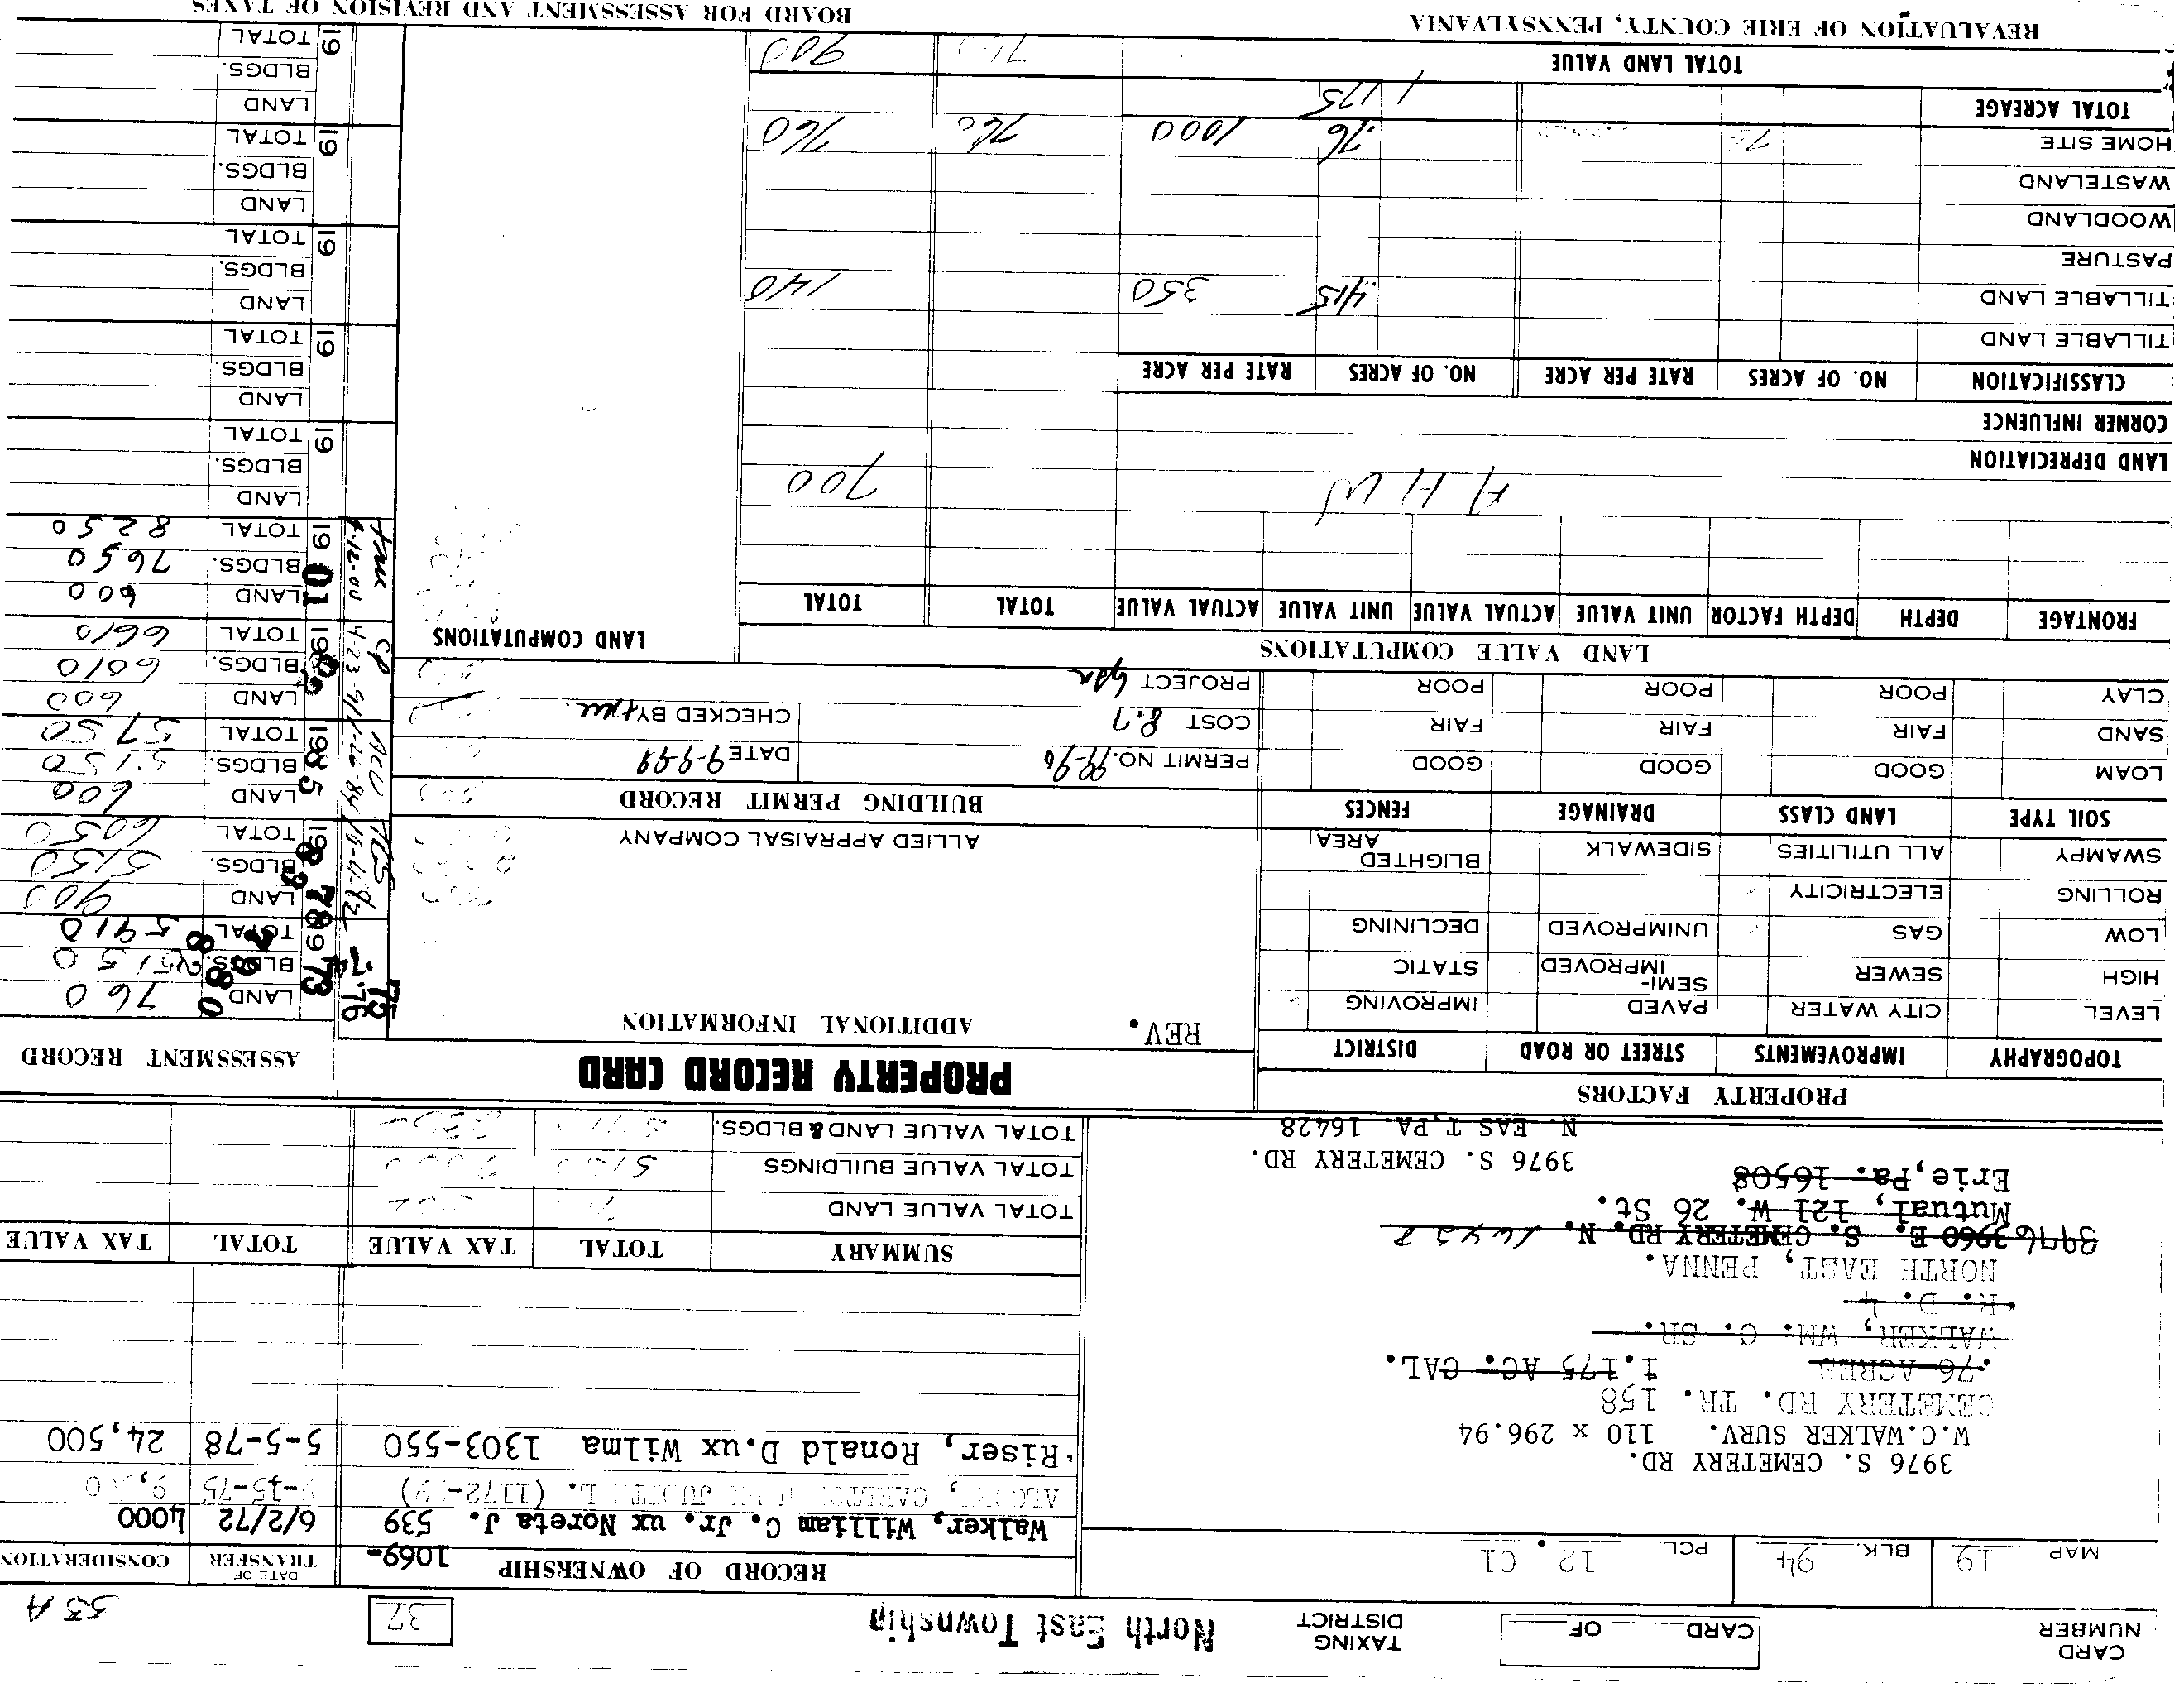 CARD NUMBER
CARD OF
TAXING DISTRICT
North East Township
37
53 A
MAP 19 BLK. 94 PCL. 12 . C1
RECORD OF OWNERSHIP
DATE OF TRANSFER
CONSIDERATION
1069-
Walker, William C. Jr. ux Noreta J. 539 6/2/72 4000
JUDITH L.
Riser, Ronald D.ux Wilma 1303-550 5-5-78 24,500
3976 S. CEMETERY RD.
W.C.WALKER SURV. 110 x 296.94
CEMETERY RD. TR. 158
.76 ACRES 1.175 AC. CAL.
WALKER, WM. C. SR.
R. D. 4
NORTH EAST, PENNA.
3976 3960 E. S. CEMETERY RD. N.
Mutual, 121 W. 26 St.
Erie, Pa. 16508
3976 S. CEMETERY RD.
N. EAST, PA 16428
SUMMARY TOTAL TAX VALUE TOTAL TAX VALUE
TOTAL VALUE LAND
TOTAL VALUE BUILDINGS 5150
TOTAL VALUE LAND & BLDGS.
PROPERTY FACTORS
TOPOGRAPHY IMPROVEMENTS STREET OR ROAD DISTRICT
LEVEL CITY WATER PAVED IMPROVING
HIGH SEWER SEMI-IMPROVED STATIC
LOW GAS UNIMPROVED DECLINING
ROLLING ELECTRICITY
SWAMPY ALL UTILITIES SIDEWALK BLIGHTED AREA
SOIL TYPE LAND CLASS DRAINAGE FENCES
LOAM GOOD GOOD GOOD
SAND FAIR FAIR FAIR
CLAY POOR POOR POOR
PROPERTY RECORD CARD
REV. ADDITIONAL INFORMATION
ALLIED APPRAISAL COMPANY
BUILDING PERMIT RECORD
PERMIT NO. 99-96 DATE 9-9-99
COST 8.7 CHECKED BY
PROJECT
ASSESSMENT RECORD
75 76
74
1973 LAND 760
BLDGS. 5150
TOTAL 5910
78 79 80
8
TCS
83 LAND 900
BLDGS. 5150
TOTAL 6050
1985 LAND 600
BLDGS. 5150
TOTAL 5750
CP 4-23-91
19 LAND 600
BLDGS. 6010
TOTAL 6610
1901 LAND 600
BLDGS. 7650
TOTAL 8250
19 LAND
BLDGS.
TOTAL
19 LAND
BLDGS.
TOTAL
19 LAND
BLDGS.
TOTAL
19 LAND
BLDGS.
TOTAL
19 LAND
BLDGS.
TOTAL
LAND VALUE COMPUTATIONS
LAND COMPUTATIONS
FRONTAGE DEPTH DEPTH FACTOR UNIT VALUE ACTUAL VALUE UNIT VALUE ACTUAL VALUE TOTAL TOTAL
A H W 700
LAND DEPRECIATION
CORNER INFLUENCE
CLASSIFICATION NO. OF ACRES RATE PER ACRE NO. OF ACRES RATE PER ACRE
TILLABLE LAND
TILLABLE LAND .415 350 140
PASTURE
WOODLAND
WASTELAND
HOME SITE .76 1000 760 760
TOTAL ACREAGE 1 175
TOTAL LAND VALUE 760 900
REVALUATION OF ERIE COUNTY, PENNSYLVANIA
BOARD FOR ASSESSMENT AND REVISION OF TAXES